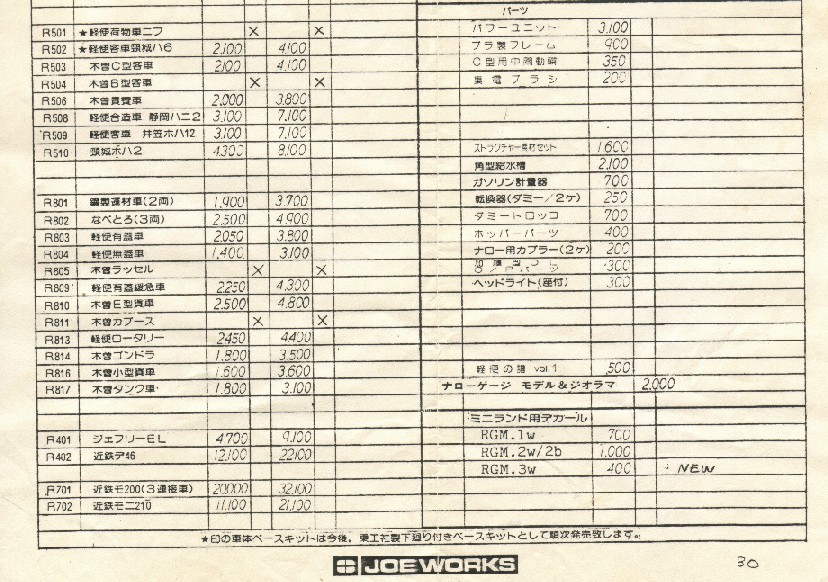 R501 ★軽便荷物車ニフ × ×
R502 ★軽便客車頸城ハ6 2,100 4,100
R503 木曽C型客車 2,100 4,100
R504 木曽B型客車 × ×
R506 木曽貨車 2,000 3,800
R508 軽便合造車 静岡ハニ2 3,100 7,100
R509 軽便客車 井笠ホハ12 3,100 7,100
R510 頸城ホハ2 4,300 8,100
R801 鋼製運材車(2両) 1,900 3,700
R802 なべとろ(3両) 2,500 4,900
R803 軽便有蓋車 2,050 3,800
R804 軽便無蓋車 1,400 3,100
R805 木曽ラッセル × ×
R809 軽便有蓋緩急車 2,250 4,300
R810 木曽E型貨車 2,500 4,800
R811 木曽カブース × ×
R813 軽便ロータリー 2450 4400
R814 木曽ゴンドラ 1,800 3,500
R816 木曽小型貨車 1,600 3,600
R817 木曽タンク車 1,800 3,100
R401 ジェフリーEL 4700 9,100
R402 近鉄デ46 12,100 22,100
R701 近鉄モ200(3連接車) 20,000 32,100
R702 近鉄モニ210 11,100 21,100
パーツ
パワーユニット 3,100
プラ製フレーム 900
C型用中間動輪 350
集電ブラシ 200
1,600
角型給水槽 2,100
ガソリン計量器 700
転換器(ダミー/2ケ) 250
ダミートロッコ 700
ホッパーパーツ 400
ナロー用カプラー(2ケ) 200
300
ヘッドライト(座付) 300
軽便の譜 vol.1 500
ナローゲージ モデル&ジオラマ 2,000
ミニランド用デカール
RGM.1w 700
RGM.2w/2b 1,000
RGM.3w 400 NEW
★印の車体ベースキットは今後，乗工社製下廻り付きベースキットとして順次発売致します。
JOE WORKS
30